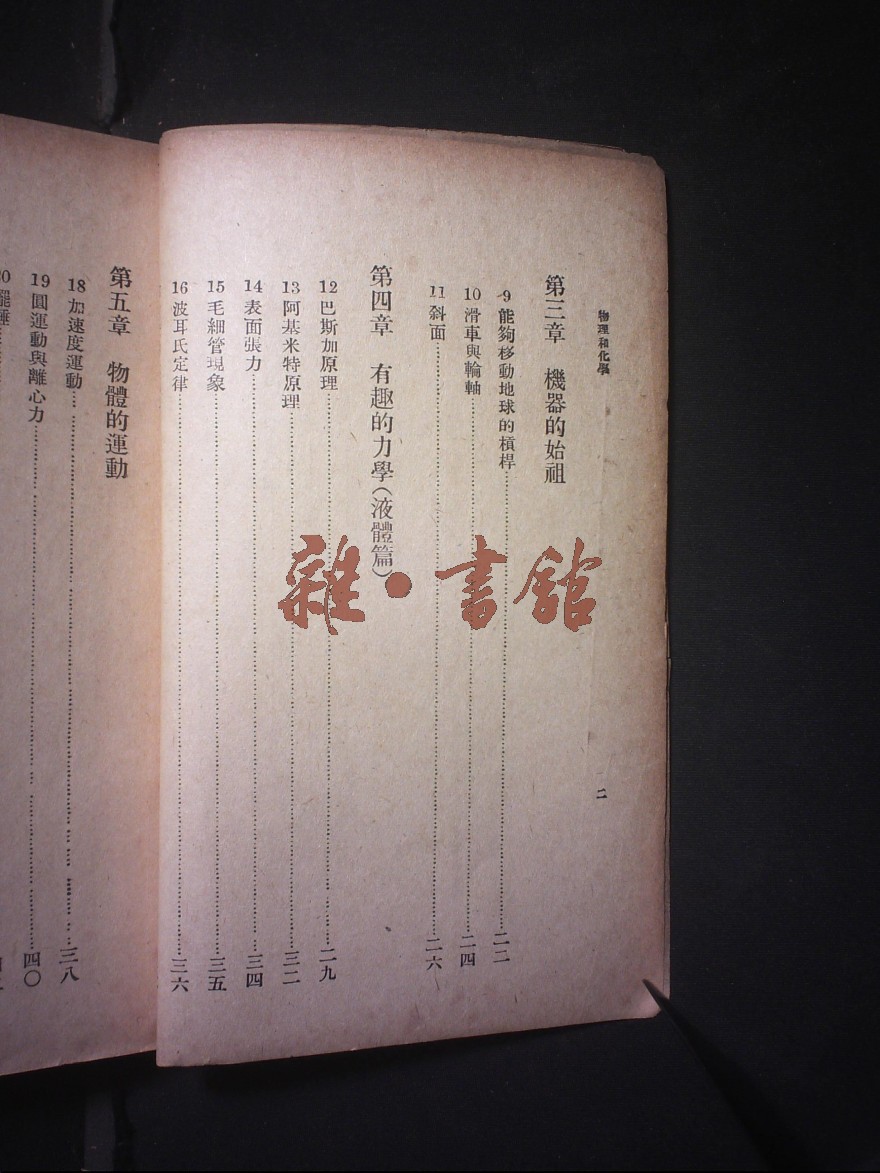 物理和化學
二
第三章 機器的始祖
9 能夠移動地球的槓桿 二二
10 滑車與輪軸 二四
11 斜面 二六
第四章 有趣的力學(液體篇)
12 巴斯加原理 二九
13 阿基米特原理 三二
14 表面張力 三四
15 毛細管現象 三五
16 波耳氏定律 三六
第五章 物體的運動
18 加速度運動 三八
19 圓運動與離心力 四〇
雜·書館